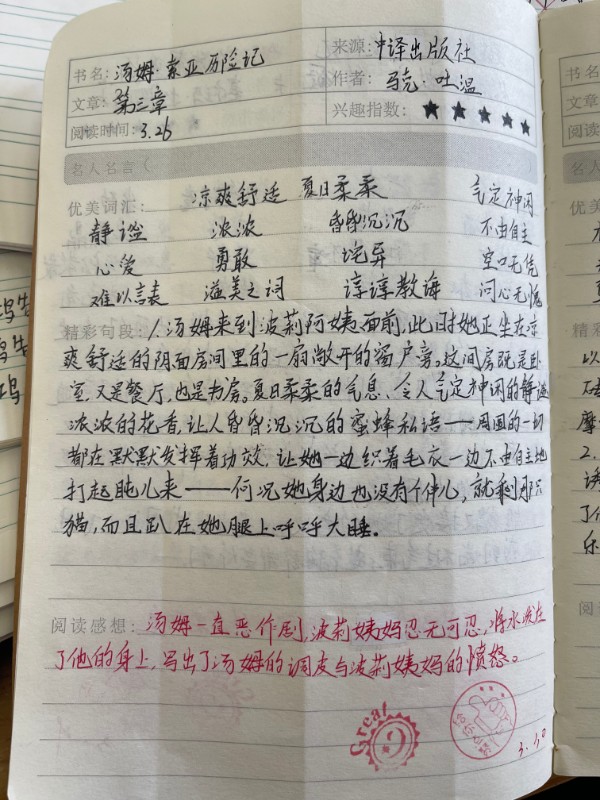 书名：汤姆·索亚历险记 来源：中译出版社
文章：第三章 作者：马克·吐温
阅读时间：3.26 兴趣指数：★★★★★
名人名言
优美词汇： 凉爽舒适 夏日柔柔 气定神闲
静谧 浓浓 昏昏沉沉 不由自主
心爱 勇敢 诧异 空口无凭
难以言表 溢美之词 谆谆教诲 问心无愧
精彩句段：1.汤姆来到波莉阿姨面前,此时她正坐在凉
爽舒适的阴面房间里的一扇敞开的窗户旁。这间房既是卧
室,又是餐厅,也是书房。夏日柔柔的气息、令人气定神闲的静谧
浓浓的花香,让人昏昏沉沉的蜜蜂私语——周围的一切
都在默默发挥着功效,让她一边织着毛衣一边不由自主地
打起盹儿来——何况她身边也没有个伴儿,就剩那只
猫,而且趴在她腿上呼呼大睡。
阅读感想：汤姆一直恶作剧,波莉姨妈忍无可忍,将水泼在
了他的身上,写出了汤姆的调皮与波莉姨妈的愤怒。
Great
3.30